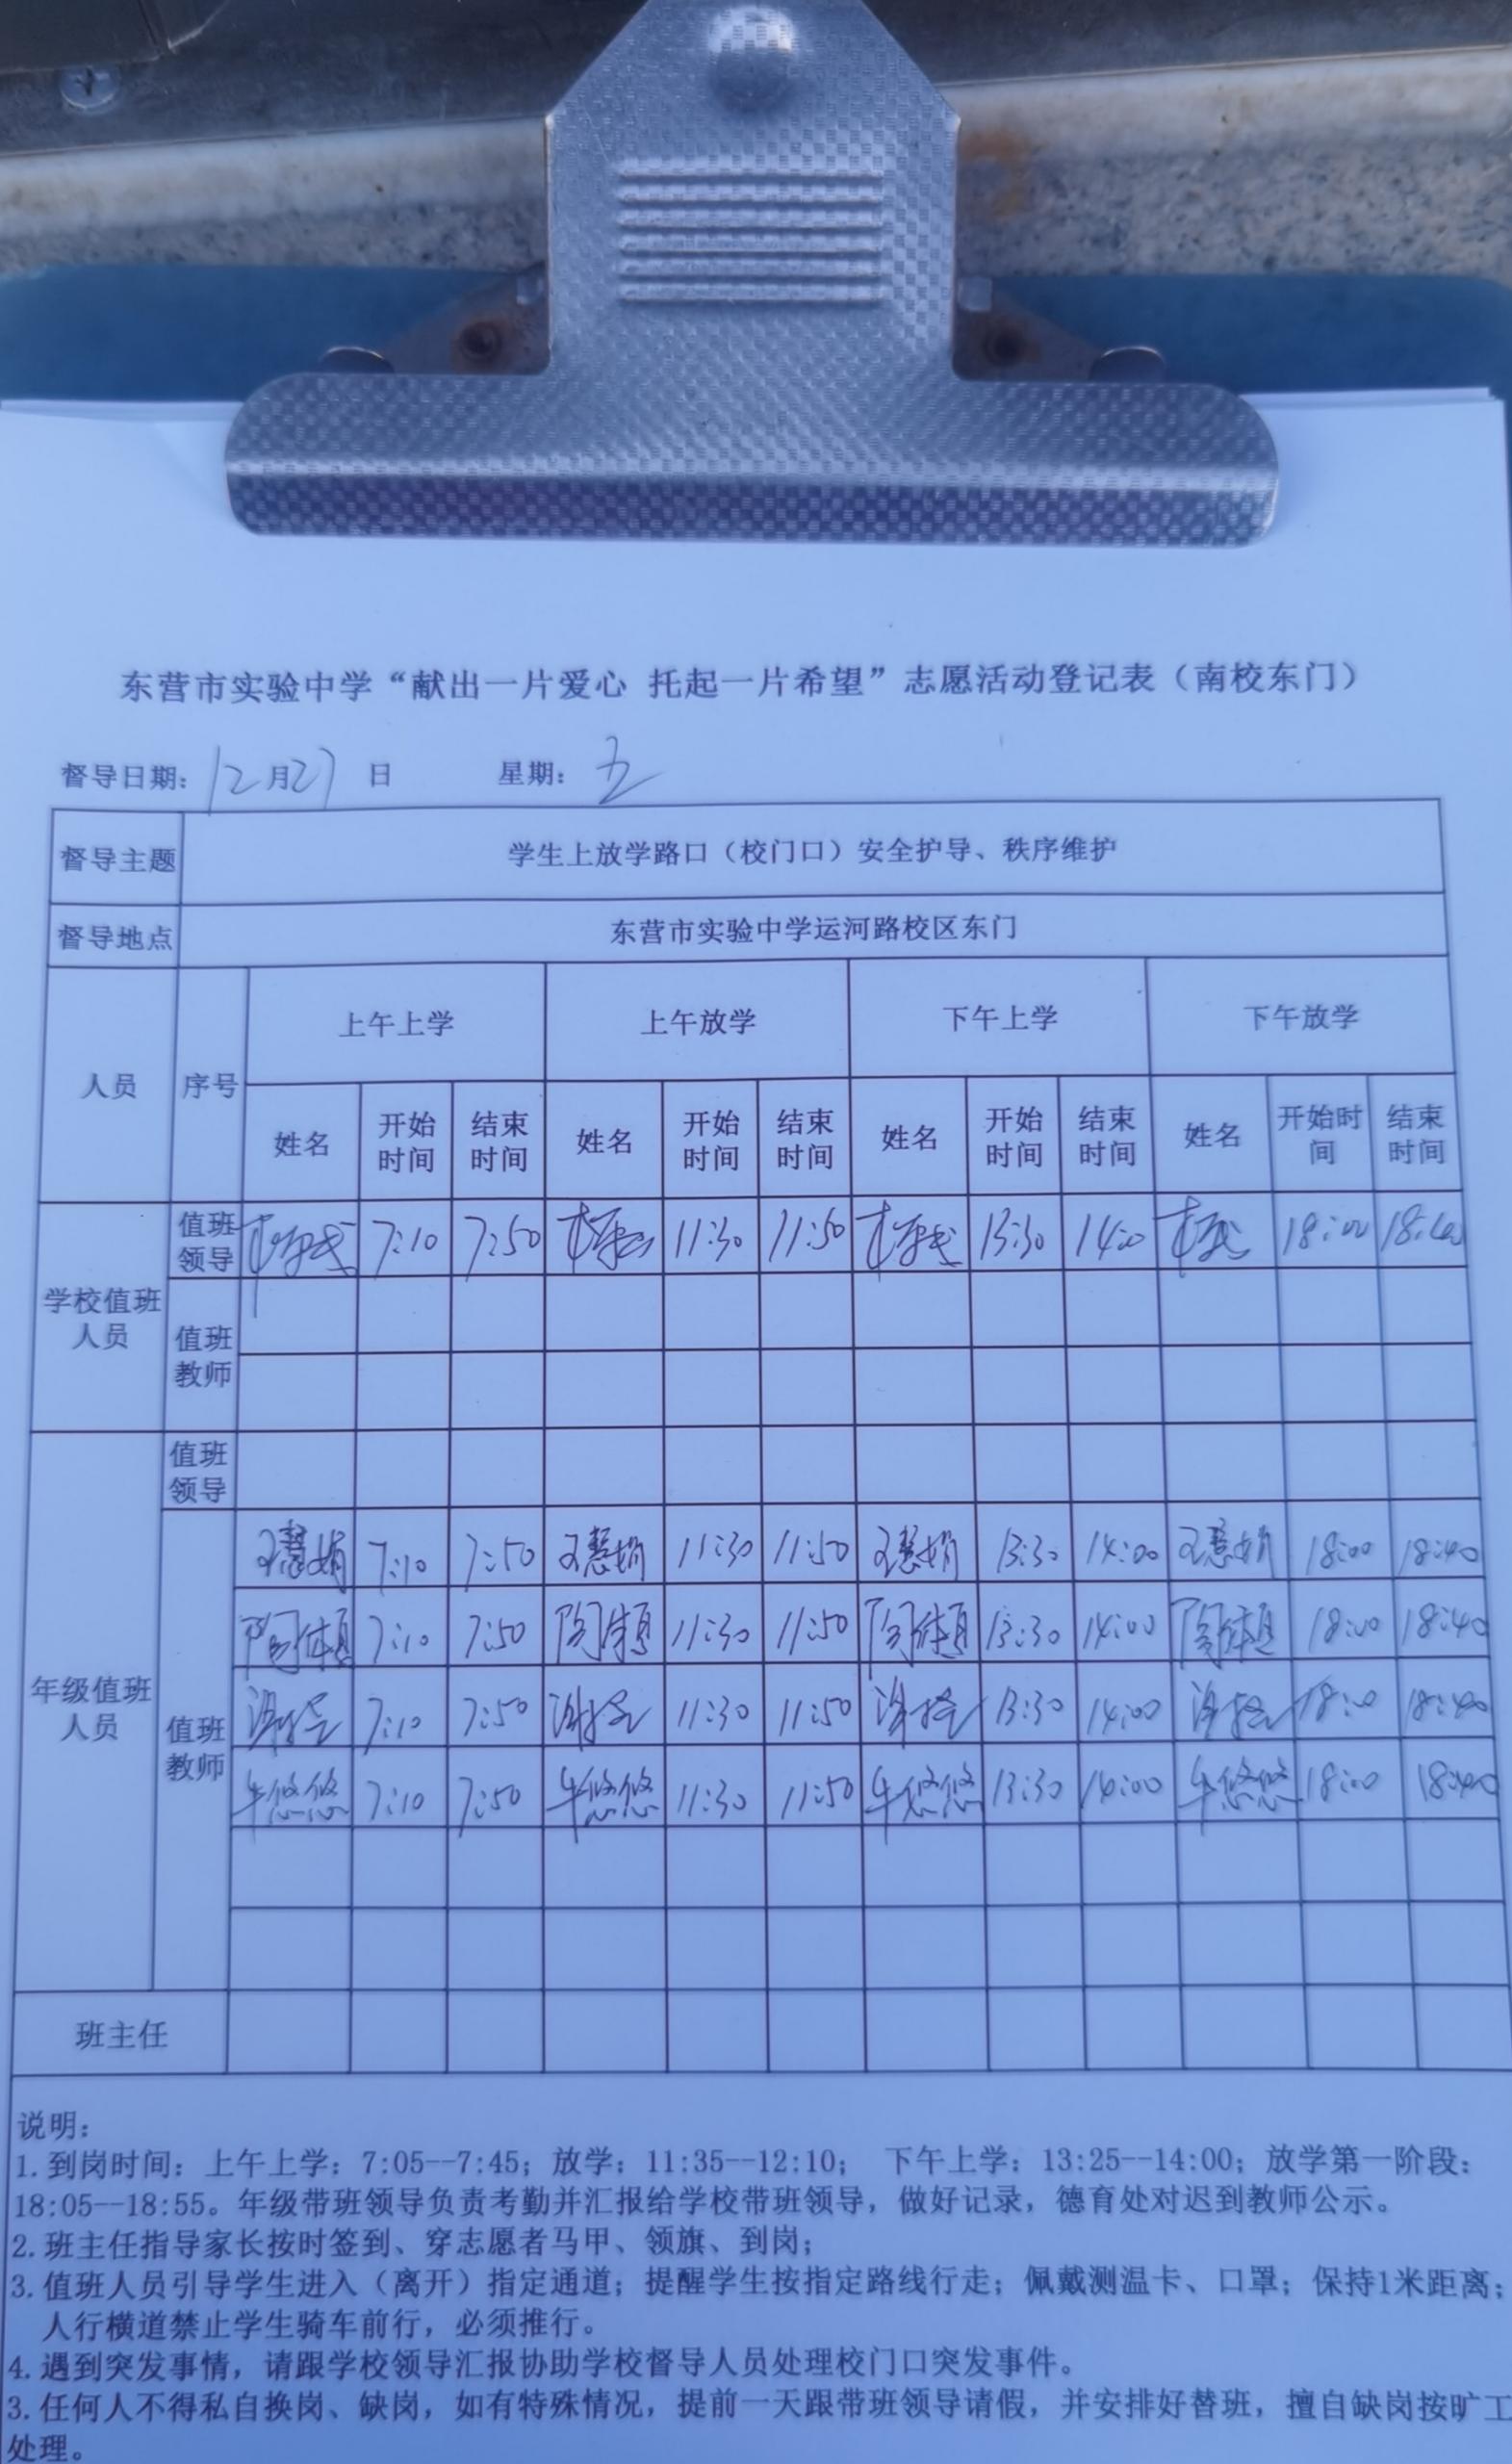 东营市实验中学“献出一片爱心 托起一片希望”志愿活动登记表（南校东门）
督导日期：12月27日 星期：五
督导主题 学生上放学路口（校门口）安全护导、秩序维护
督导地点 东营市实验中学运河路校区东门
人员 序号 上午上学 上午放学 下午上学 下午放学
姓名 开始时间 结束时间 姓名 开始时间 结束时间 姓名 开始时间 结束时间 姓名 开始时间 结束时间
学校值班人员 值班领导 7:10 7:50 11:30 11:50 13:30 14:00 18:00 18:40
值班教师
年级值班人员 值班领导
值班教师 王慧娟 7:10 7:50 王慧娟 11:30 11:50 王慧娟 13:30 14:00 王慧娟 18:00 18:40
7:10 7:50 11:30 11:50 13:30 14:00 18:00 18:40
7:10 7:50 11:30 11:50 13:30 14:00 18:00 18:40
牛悠悠 7:10 7:50 牛悠悠 11:30 11:50 牛悠悠 13:30 14:00 牛悠悠 18:00 18:40
班主任
说明：
1.到岗时间：上午上学：7:05--7:45；放学：11:35--12:10； 下午上学：13:25--14:00；放学第一阶段：
18:05--18:55。年级带班领导负责考勤并汇报给学校带班领导，做好记录，德育处对迟到教师公示。
2.班主任指导家长按时签到、穿志愿者马甲、领旗、到岗；
3.值班人员引导学生进入（离开）指定通道；提醒学生按指定路线行走；佩戴测温卡、口罩；保持1米距离；
人行横道禁止学生骑车前行，必须推行。
4.遇到突发事情，请跟学校领导汇报协助学校督导人员处理校门口突发事件。
3.任何人不得私自换岗、缺岗，如有特殊情况，提前一天跟带班领导请假，并安排好替班，擅自缺岗按旷工
处理。